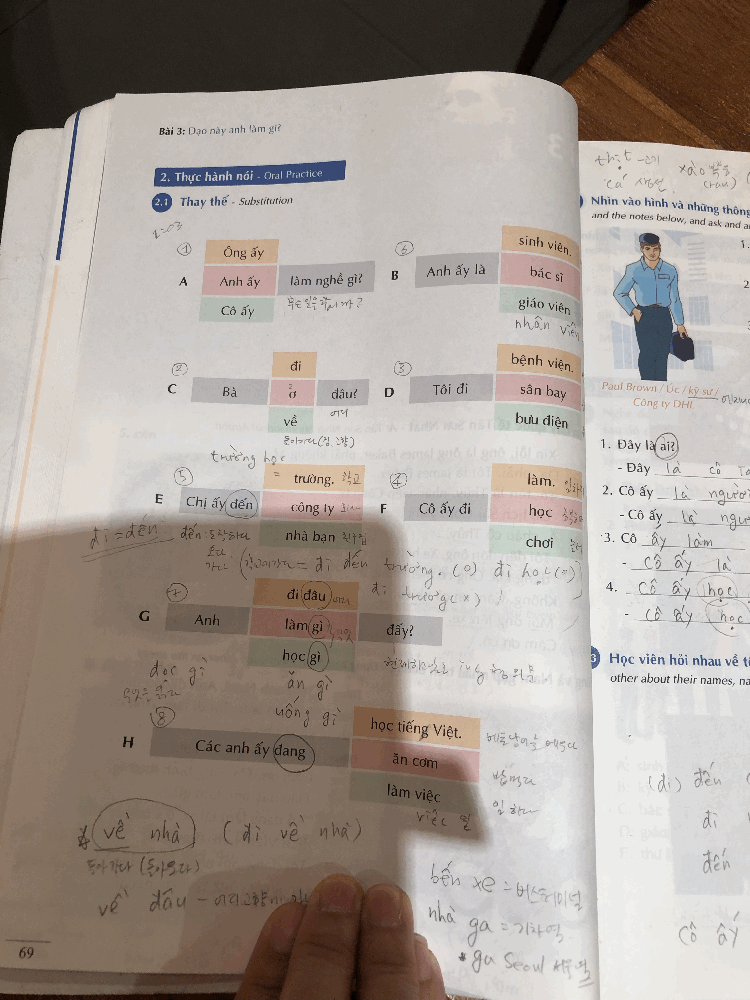 Bài 3: Đạo này anh làm gì?
2. Thực hành nói - Oral Practice
2.1 Thay thế - Substitution
① ⑥
Ông ấy
A Anh ấy làm nghề gì?
Cô ấy
sinh viên.
B Anh ấy là bác sĩ
giáo viên
nhân viên
② ③
đi
C Bà ở đâu?
về
어디
bệnh viện.
D Tôi đi sân bay
bưu điện
trường học
⑤ ④
= trường. 학교
E Chị ấy đến công ty 회사
nhà bạn 친구집
làm.
F Cô ấy đi học
chơi
đi = đến
đến
오다
가다
= đi đến trường. (o) đi học (o)
đi trường (x)
⑦
đi đâu
G Anh làm gì đấy?
học gì
đọc gì
ăn gì
uống gì
⑧
học tiếng Việt.
H Các anh ấy đang ăn cơm
làm việc
밥먹다
일하다
việc 일
về nhà (đi về nhà)
돌아가다 (돌아오다)
về đâu
bến xe = 버스터미널
nhà ga = 기차역
* ga Seoul
69
thịt
xào
cá
Nhìn vào hình và những thông
and the notes below, and ask and
1.
2
Paul Brown / Úc / kỹ sư /
Công ty DHL
1. Đây là ai?
- Đây là cô
2. Cô ấy là người
- Cô ấy là người
3. Cô ấy làm
- Cô ấy là
4. Cô ấy học
- Cô ấy học
3 Học viên hỏi nhau về
other about their names,
(đi) đến
đi
đến
Cô ấy